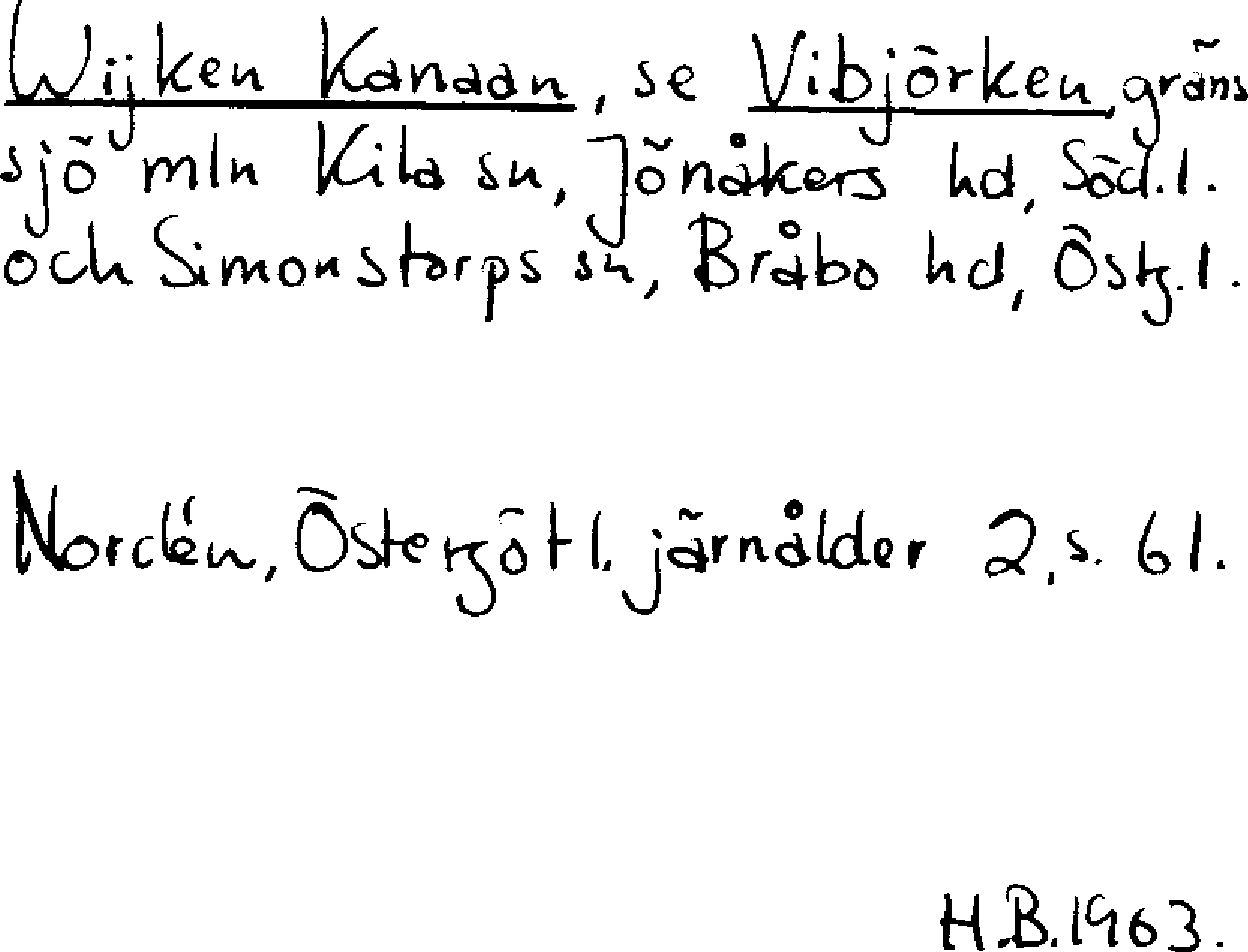 Wijken Kanaan, se Vibjörken gräns
sjö mln Kila sn, Jönåkers hd, Söd.l.
och Simonstorps sn, Bråbo hd, Östg.l.
Nordén, Östergötl. järnålder 2, s. 61.
H.B. 1963.